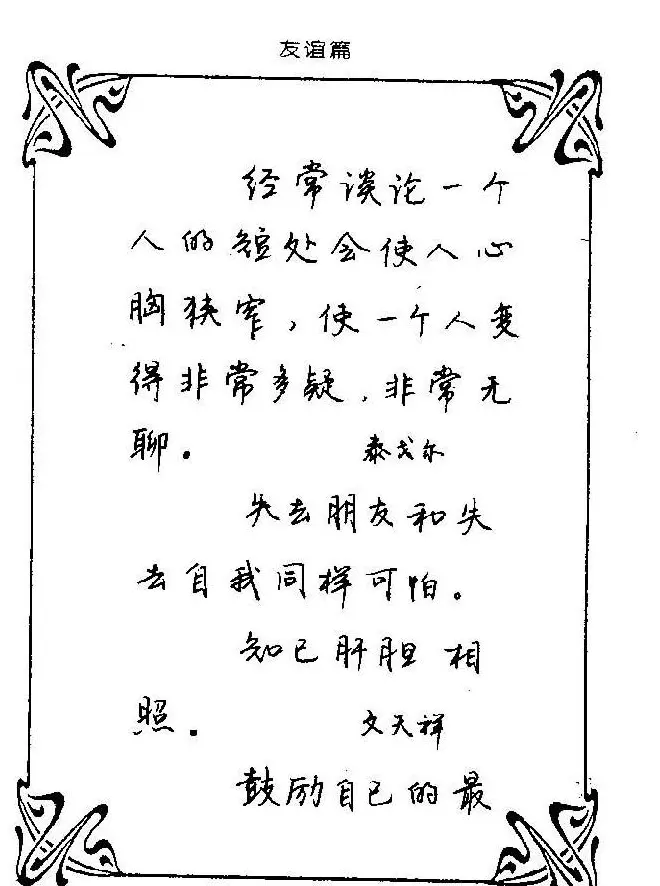 友谊篇
经常谈论一个
人的短处会使人心
胸狭窄，使一个人变
得非常多疑，非常无
聊。 泰戈尔
失去朋友和失
去自我同样可怕。
知己肝胆相
照。 文天祥
鼓励自己的最